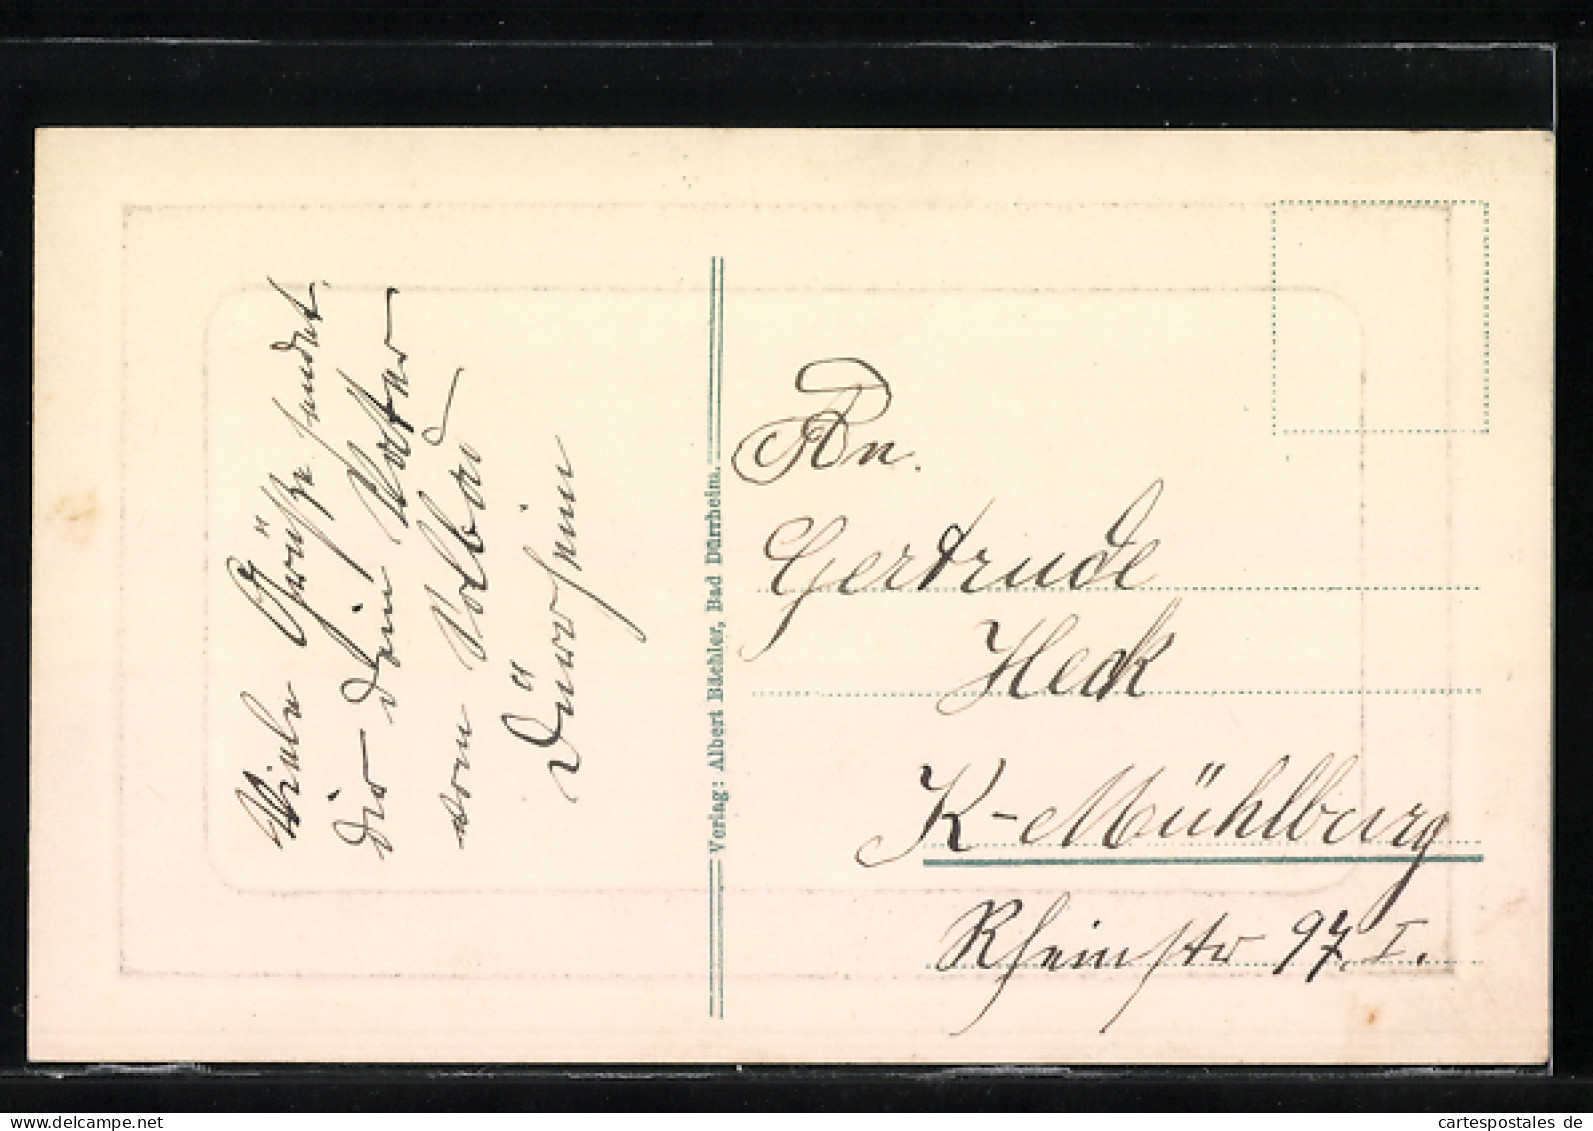 Viele Grüße sendet
dir dein Vater
vom Solbad
Dürrheim
Verlag: Albert Bächler, Bad Dürrheim.
An
Gertrude
Heck
K-Mühlburg
Rheinstr 97. I.
cartespostales de